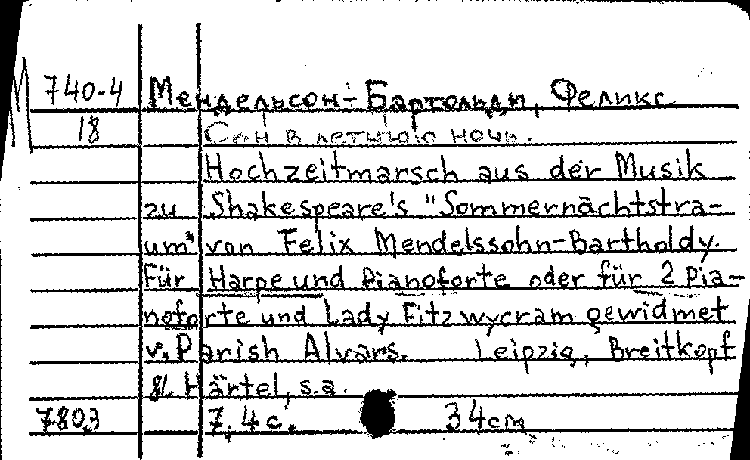 М 740-4 Мендельсон-Бартольди, Феликс
18 Сон в летнюю ночь.
Hochzeitmarsch aus der Musik
zu Shakespeare's "Sommernächtstra-
um" von Felix Mendelssohn-Bartholdy.
Für Harpe und Pianoforte oder für 2 Pia-
noforte und Lady Fitz wycram gewidmet
v. Parish Alvars. Leipzig, Breitkopf
& Härtel, s.a.
7803 7, 4 c. 34cm